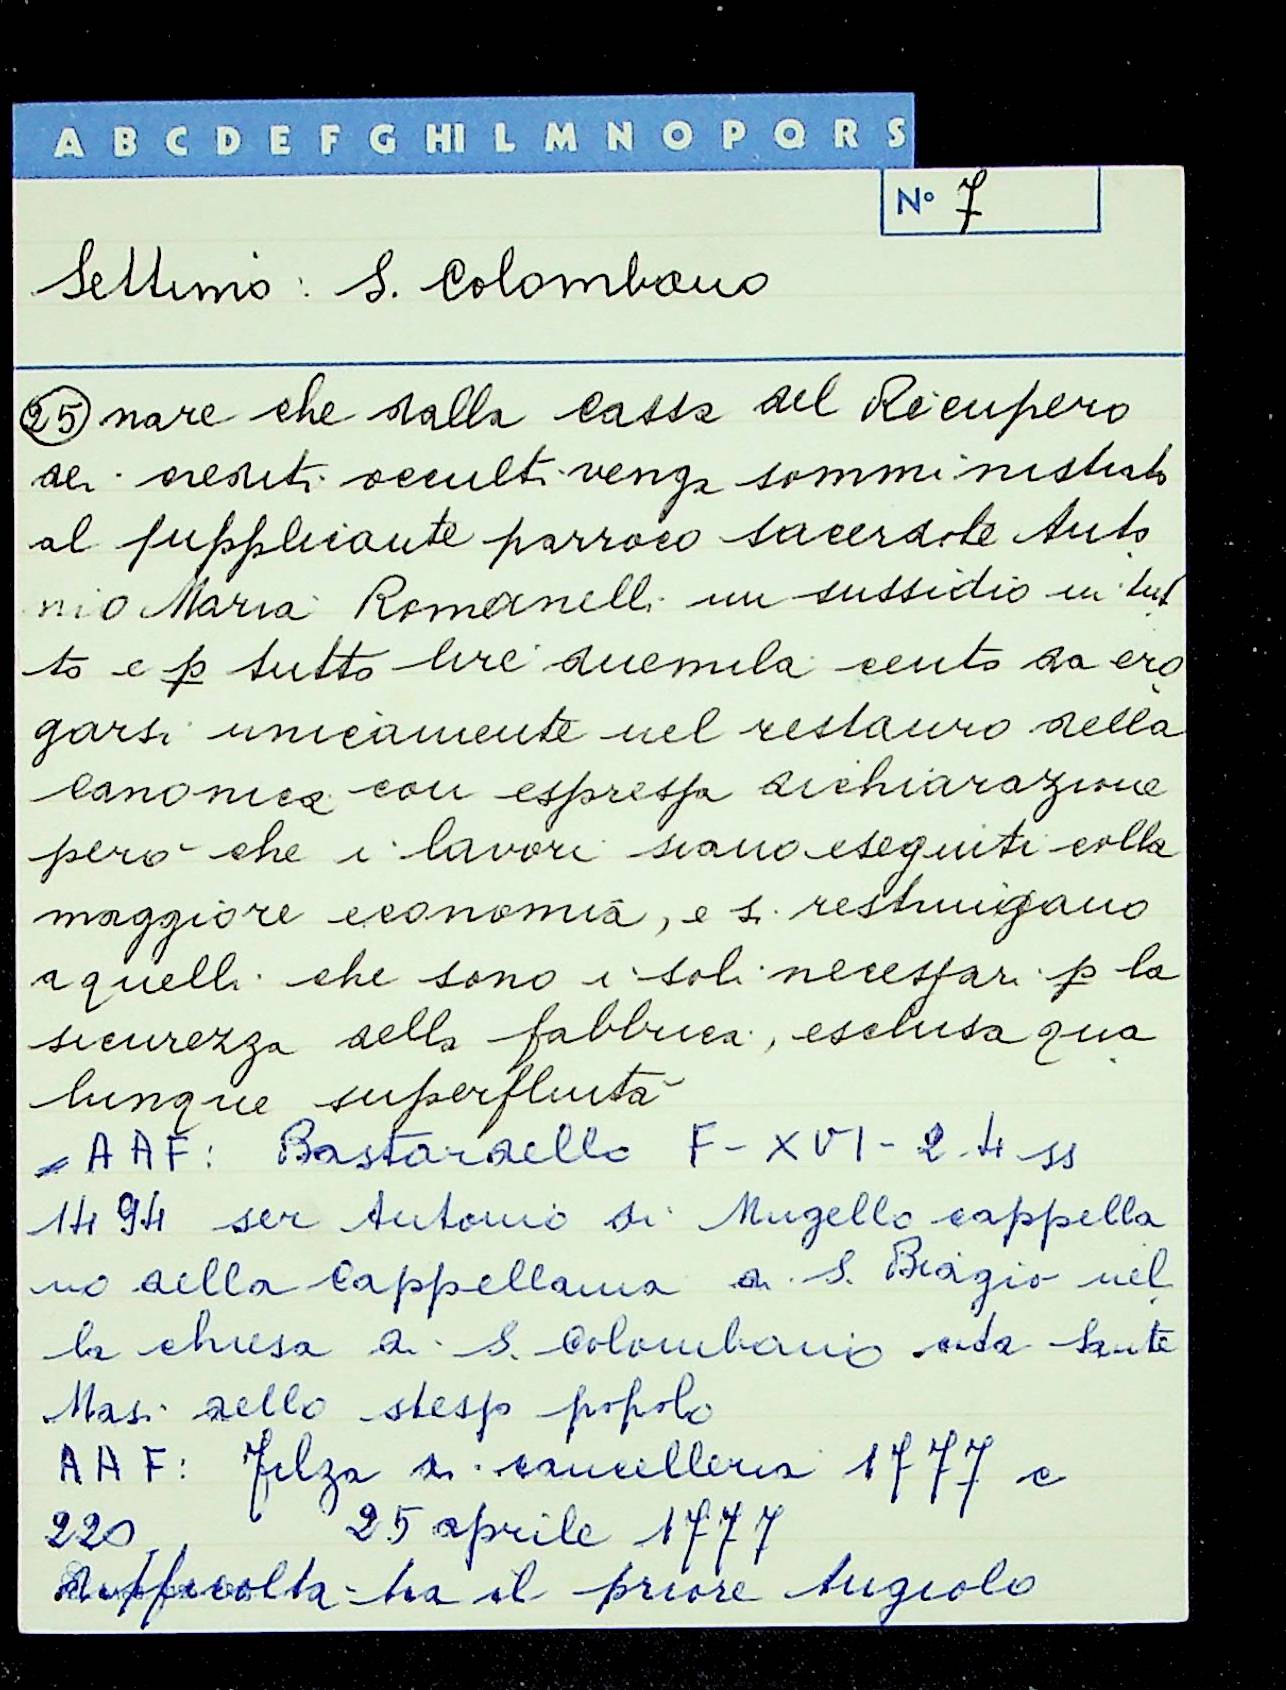 A B C D E F G HI L M N O P Q R S
N° 7
Settimo: S. Colombano
25 nare che dalla cassa del Recupero
dei crediti occulti venga somministrato
al supplicante parroco sacerdote Anto
nio Maria Romanelli un sussidio in tut
to e p tutto lire duemila cento da ero
garsi unicamente nel restauro della
canonica con espressa dichiarazione
però che i lavori siano eseguiti colla
maggiore economia, e si restringano
a quelli che sono i soli necessari p la
sicurezza della fabbrica, esclusa qua
lunque superfluità
- AAF: Bastardello F-XVI-2.4 ss
1494 ser Antonio di Mugello cappella
no della Cappellania di S. Biagio nel
la chiesa di S. Colombano Sante
Masi dello stesso popolo
AAF: Filza di cancelleria 1777 c
220 25 aprile 1777
ha il priore Angiolo